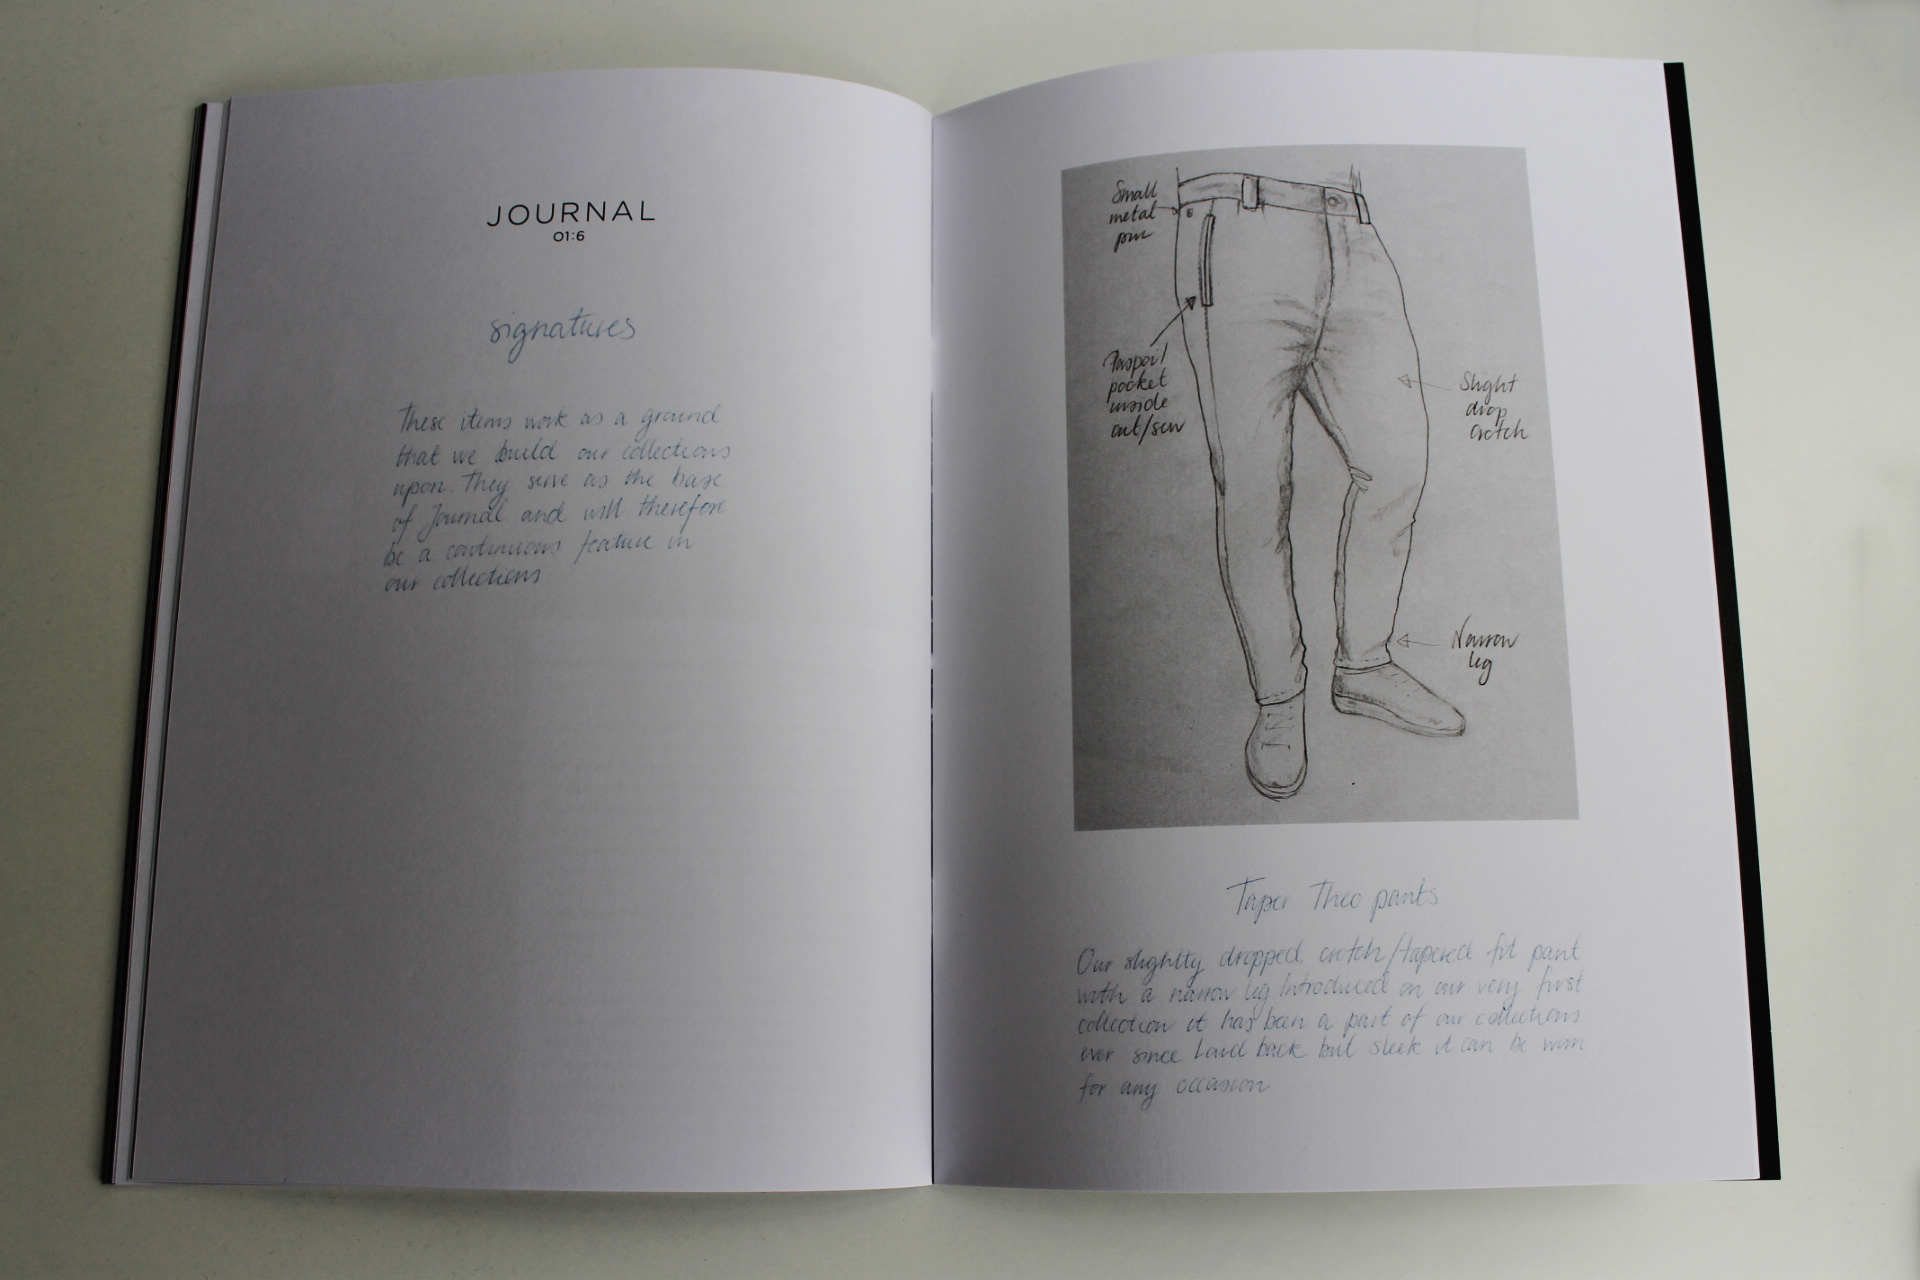 JOURNAL
01:6
signatures
These items work as a ground
that we build our collections
upon. They serve as the base
of Journal and will therefore
be a continuous feature in
our collections
Small
metal
pin
Paspoil
pocket
inside
out/sew
Slight
drop
crotch
Narrow
leg
Taper Theo pants
Our slightly dropped crotch/tapered fit pant
with a narrow leg Introduced on our very first
collection it has been a part of our collections
ever since Laid back but sleek it can be worn
for any occasion